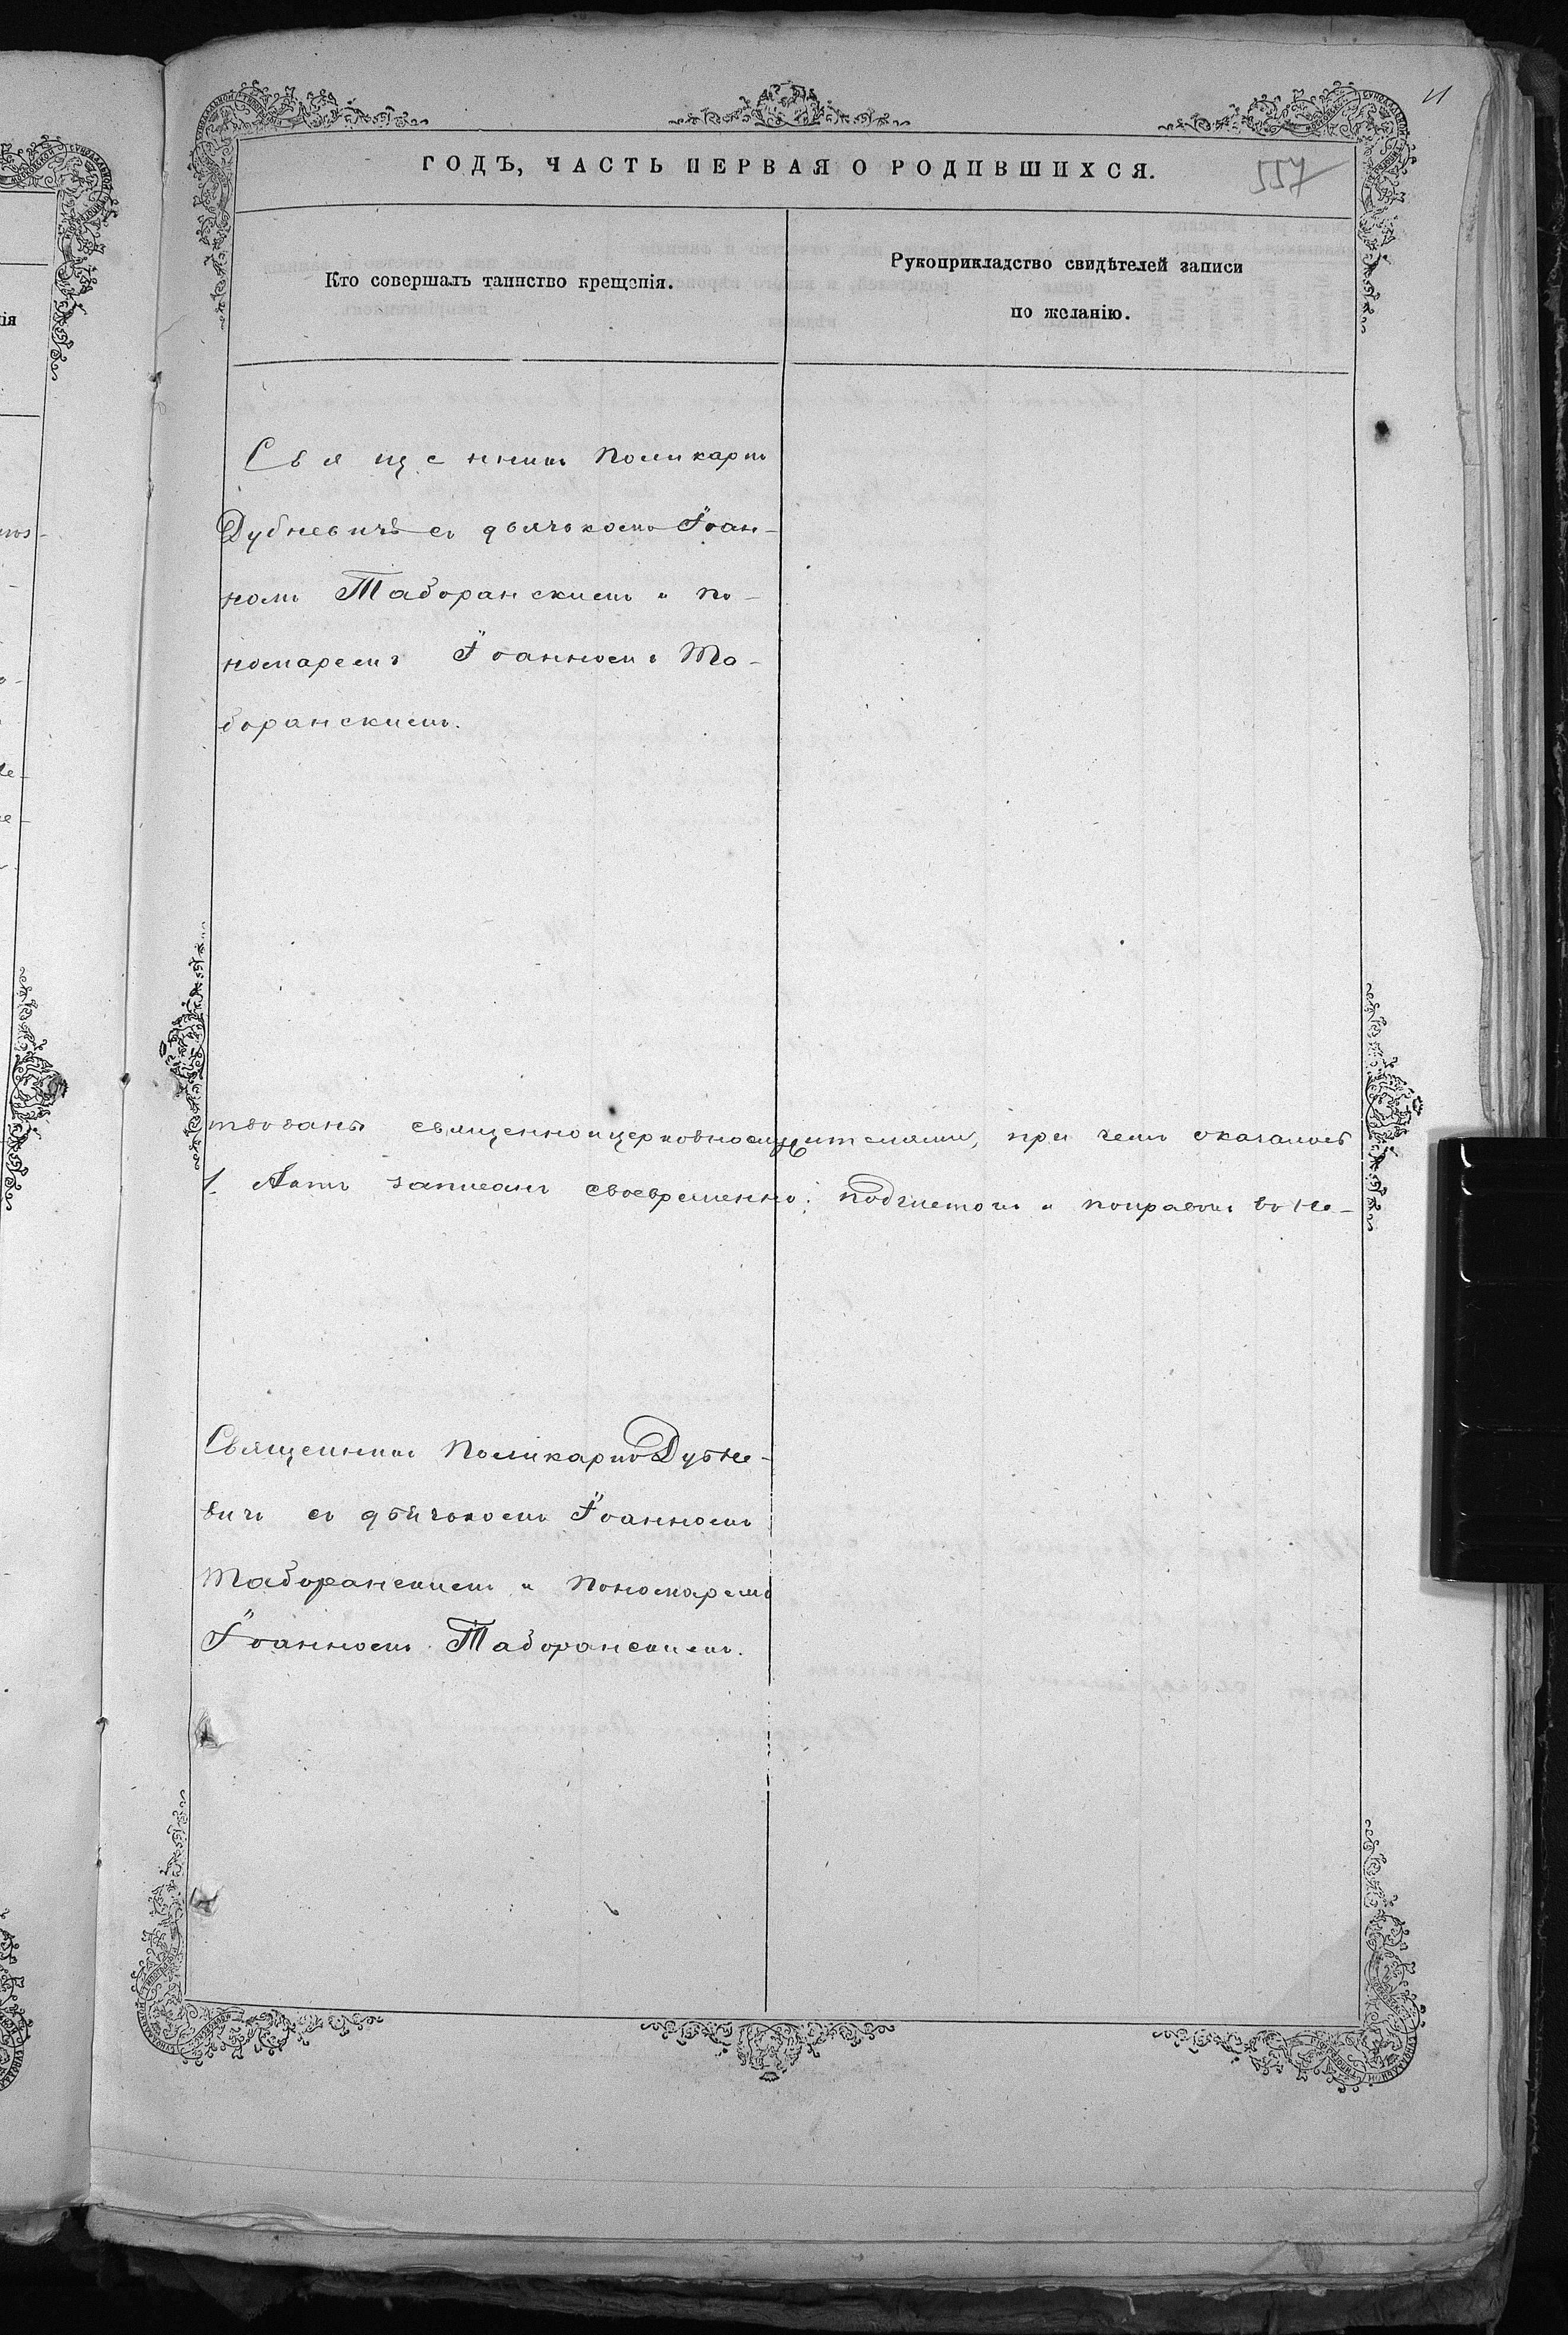 11
ГОДЪ, ЧАСТЬ ПЕРВАЯ О РОДИВШИХСЯ.
557
Кто совершалъ таинство крещенія.
Рукоприкладство свидѣтелей записи
по желанію.
Священникъ Поликарпъ
Дубневичъ съ дьячкомъ Іоан-
номъ Таборанскимъ и по-
номаремъ Іоанномъ Та-
боранскимъ.
твованъ священноицерковнослужителями, при чемъ оказалось
1. Актъ записанъ своевременно; подчистокъ и поправокъ въ не-
Священникъ Поликарпъ Дубне-
вичъ съ дьячкомъ Іоанномъ
Таборанскимъ и пономаремъ
Іоанномъ Таборанскимъ.